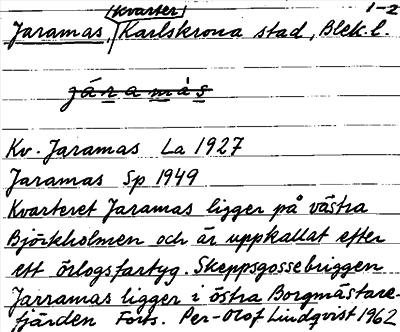 (Kvarter) 1-2
Jaramas, Karlskrona stad, Blek. l.
járamàs
Kv. Jaramas La 1927
Jaramas Sp 1949
Kvarteret Jaramas ligger på västra
Björkholmen och är uppkallat efter
ett örlogsfartyg. Skeppsgossebriggen
Jarramas ligger i östra Borgmästare-
fjärden Forts. Per-Olof Lindqvist 1962